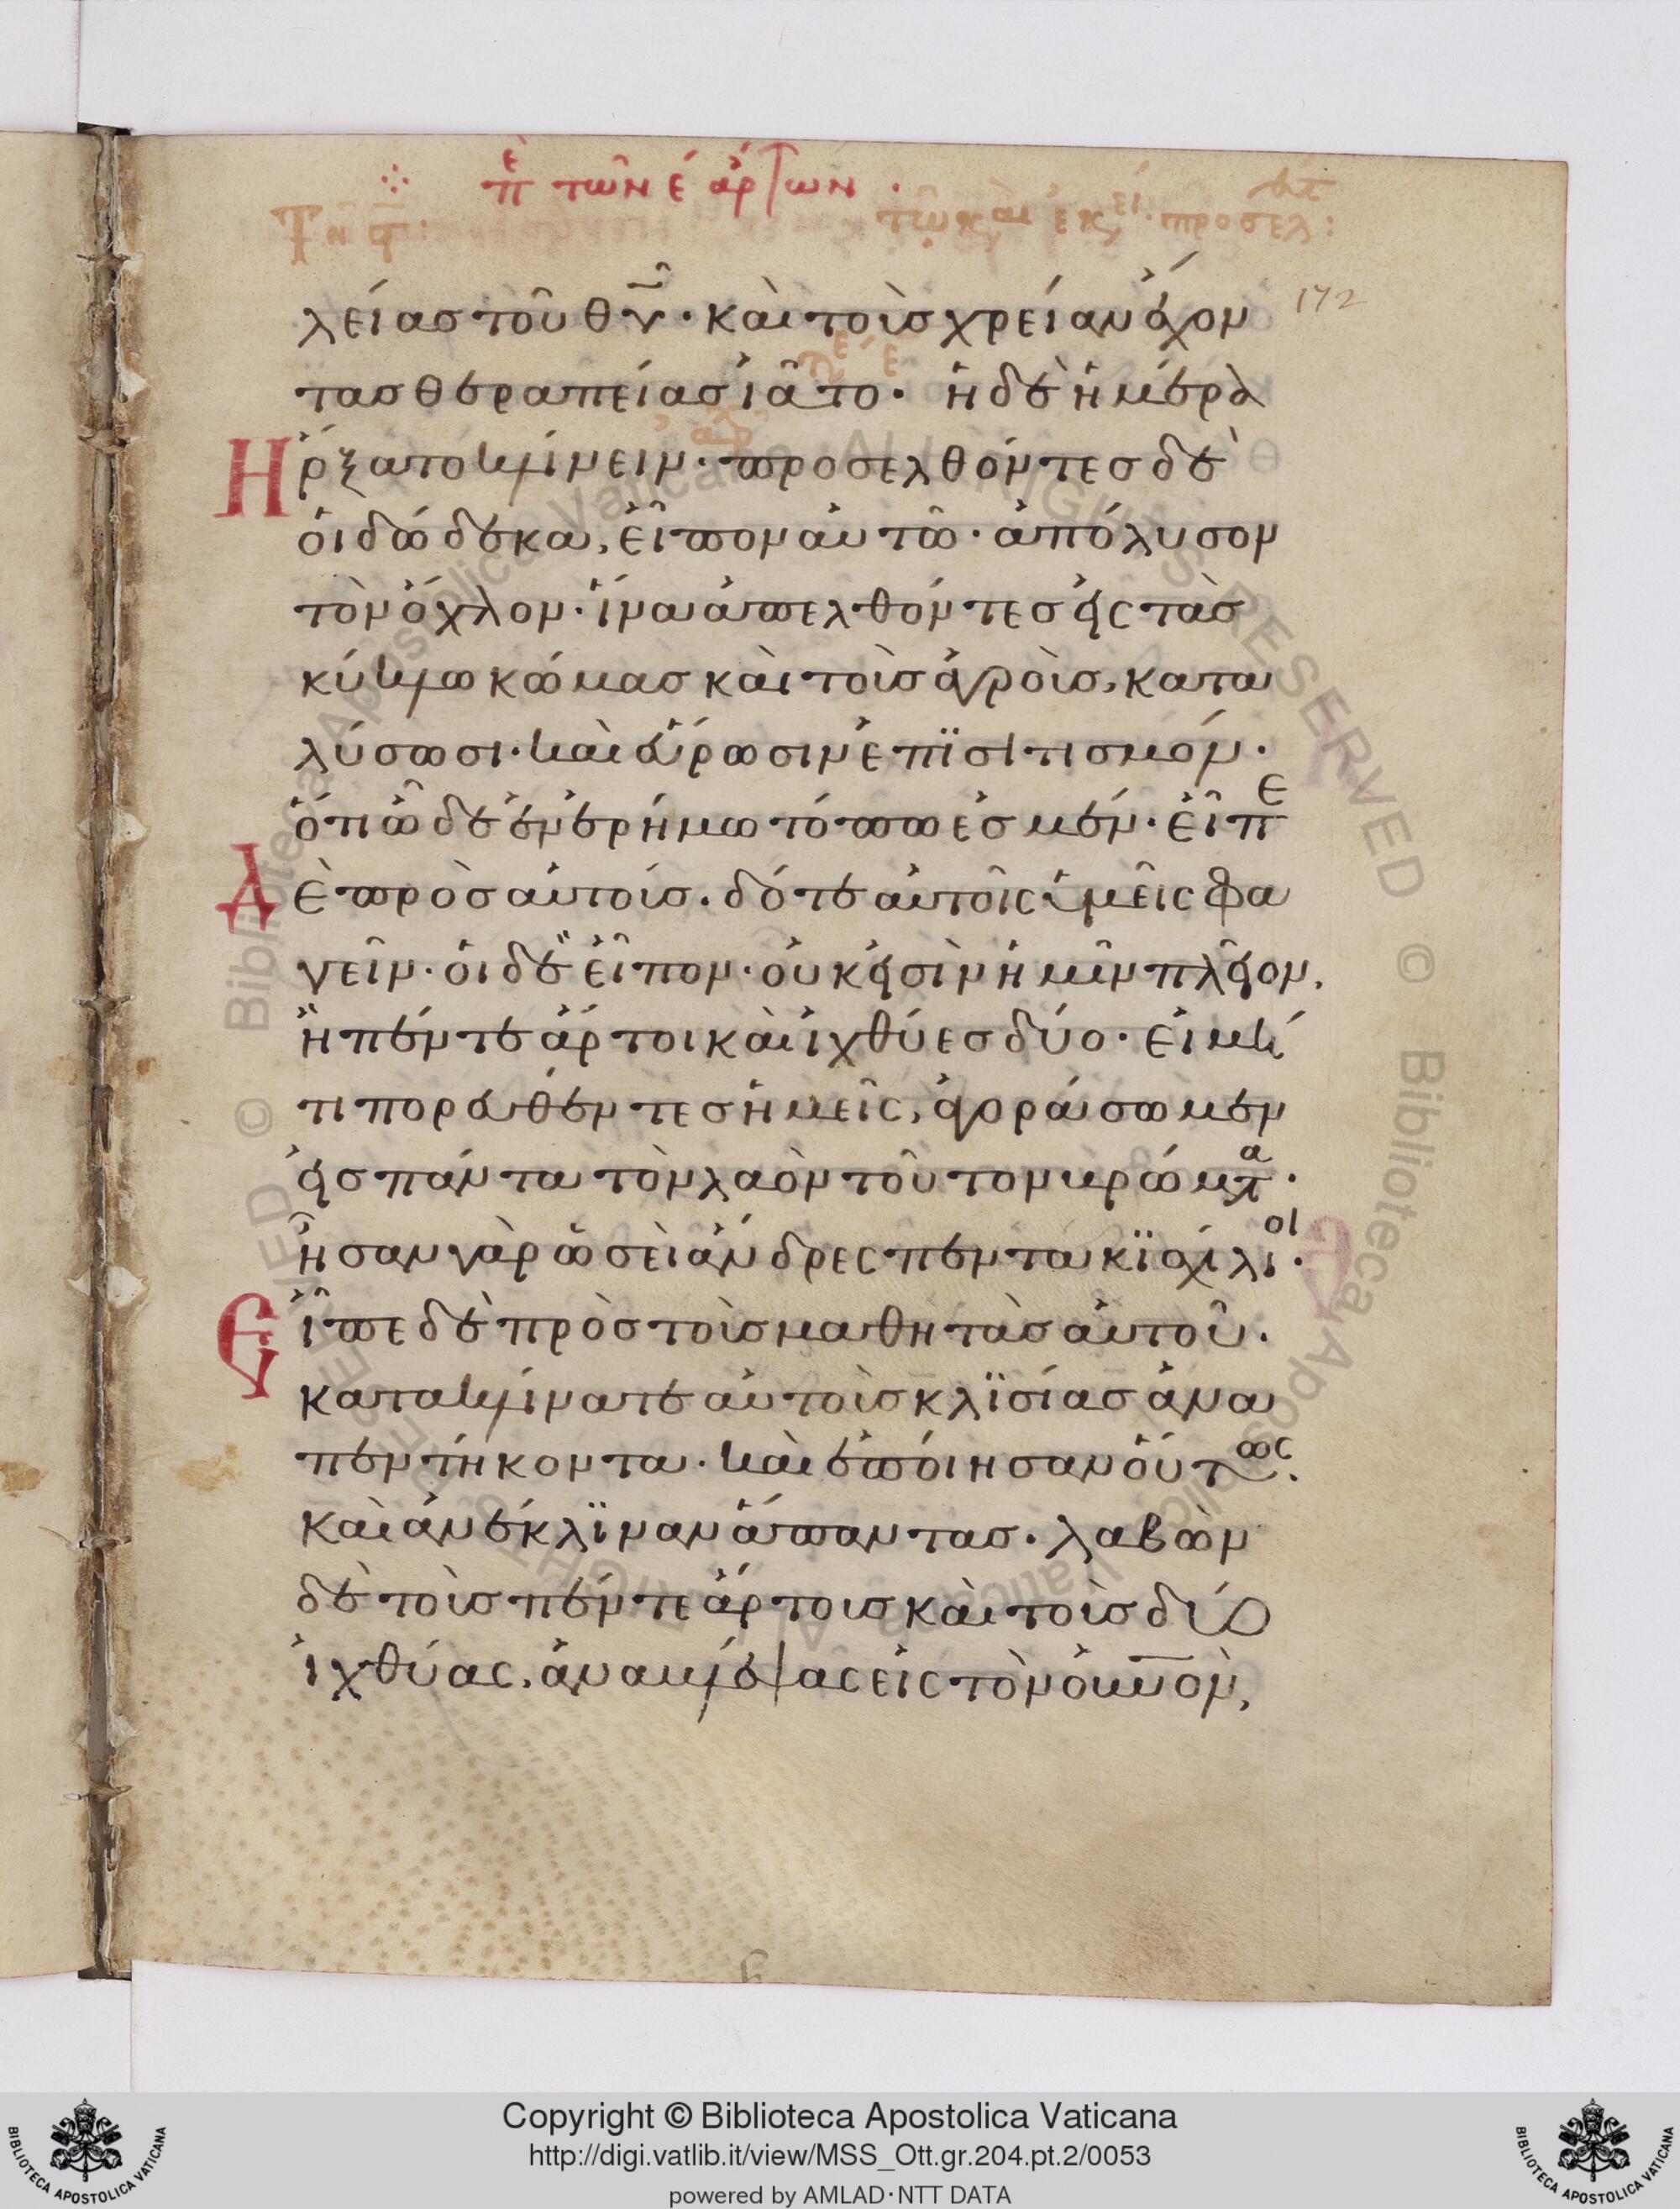 πε τῶν ε ἄρτων
172
λείας τοῦ θυ· καὶ τοὺς χρείαν ἔχον
τας θεραπείας ἰᾶτο· ἡ δὲ ἡμέρα
Ἤρξατο κλίνειν· προσελθόντες δὲ
οἱ δώδεκα, εἶπον αὐτῶ· ἀπόλυσον
τὸν ὄχλον· ἵνα ἀπελθόντες εἰς τὰς
κύκλω κώμας καὶ τοὺς ἀγροὺς, κατα
λύσωσι· καὶ εὕρωσιν ἐπϊσιτισμόν·
ὅτι ὧδε ἐν ἐρήμω τόπω ἐσμέν· εἶπε
Δὲ πρὸς αὐτούς· δότε αὐτοῖς ὑμεῖς φα
γεῖν· οἱ δὲ εἶπον· οὐκ εἰσὶν ἡμῖν πλεῖον,
ἢ πέντε ἄρτοι καὶ ἰχθύες δύο· εἰ μή
τι πορευθέντες ἡμεῖς, ἀγοράσωμεν
εἰς πάντα τὸν λαὸν τοῦτον βρώματα·
ἦσαν γὰρ ὡσεὶ ἄνδρες πεντακϊσχίλιοι·
Εἶπε δὲ πρὸς τοὺς μαθητὰς αὐτοῦ·
κατακλίνατε αὐτοὺς κλϊσίας ἀνα
πεντήκοντα· καὶ ἐποίησαν οὕτως·
καὶ ἀνέκλϊναν ἅπαντας· λαβὼν
δὲ τοὺς πέντε ἄρτους καὶ τοὺς δύο
ἰχθύας, ἀναβλέψας εἰς τὸν οὐνον,
Copyright © Biblioteca Apostolica Vaticana
http://digi.vatlib.it/view/MSS_Ott.gr.204.pt.2/0053
powered by AMLAD·NTT DATA
BIBLIOTECA APOSTOLICA VATICANA
BIBLIOTECA APOSTOLICA VATICANA